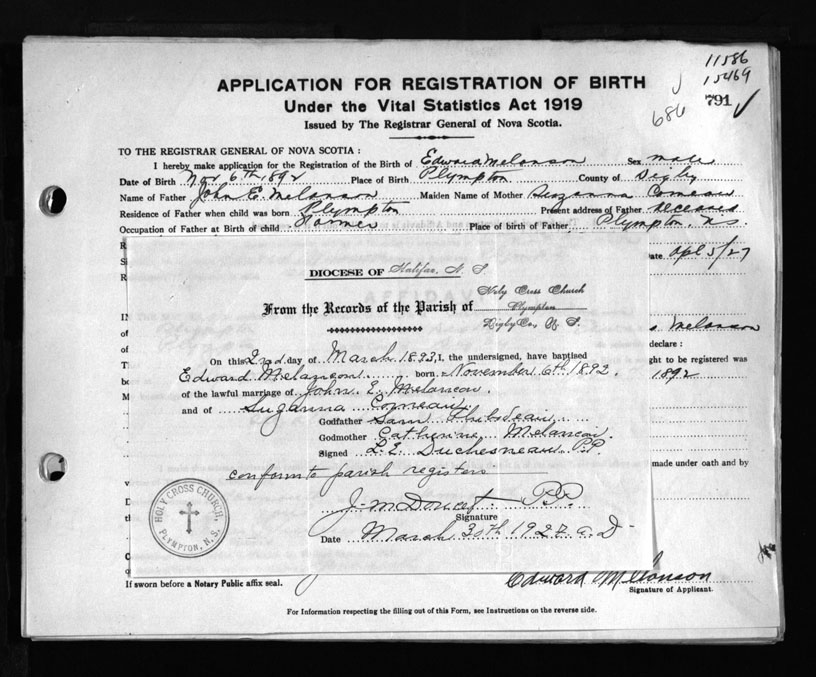 11586
15469
686
791
APPLICATION FOR REGISTRATION OF BIRTH
Under the Vital Statistics Act 1919
Issued by The Registrar General of Nova Scotia.
TO THE REGISTRAR GENERAL OF NOVA SCOTIA :
I hereby make application for the Registration of the Birth of Edward Melanson Sex male
Date of Birth Nov 6th, 1892 Place of Birth Plympton County of Digby
Name of Father John E. Melanson Maiden Name of Mother Suzanna Comeau
Residence of Father when child was born Plympton Present address of Father deceased
Occupation of Father at Birth of child Farmer Place of birth of Father Plympton, N.S.
Date Apl 5/27
DIOCESE OF Halifax, N. S.
From the Records of the Parish of Holy Cross Church
Plympton
Digby Co., N. S.
On this 2nd day of March 1893, I, the undersigned, have baptised
Edward Melancon born November 6th 1892.
of the lawful marriage of John E. Melancon
and of Suzanna Comeau
Godfather Sam Thibodeau
Godmother Catherine Melancon
Signed L. E. Duchesneau P.P.
conform to parish registers
J. M. Doucet P.P.
Signature
Date March 30th 1927 A.D
HOLY CROSS CHURCH,
PLYMPTON, N.S.
Melanson
declare :
ght to be registered was
1892
made under oath and by
If sworn before a Notary Public affix seal.
Edward Melanson
Signature of Applicant.
For Information respecting the filling out of this Form, see Instructions on the reverse side.